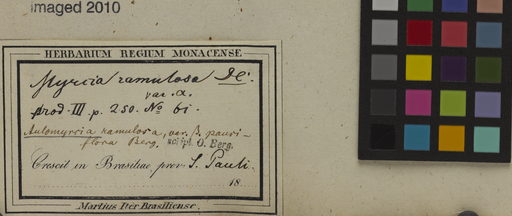 imaged 2010
HERBARIUM REGIUM MONACENSE
Myrcia ramulosa DC.
var. α.
prod. III. p. 250. No 61.
Aulomyrcia ramulosa, var. β. pauci-
flora Berg. script. O. Berg.
Crescit in Brasiliae prov. S. Pauli.
18
Martius Iter Brasiliense.